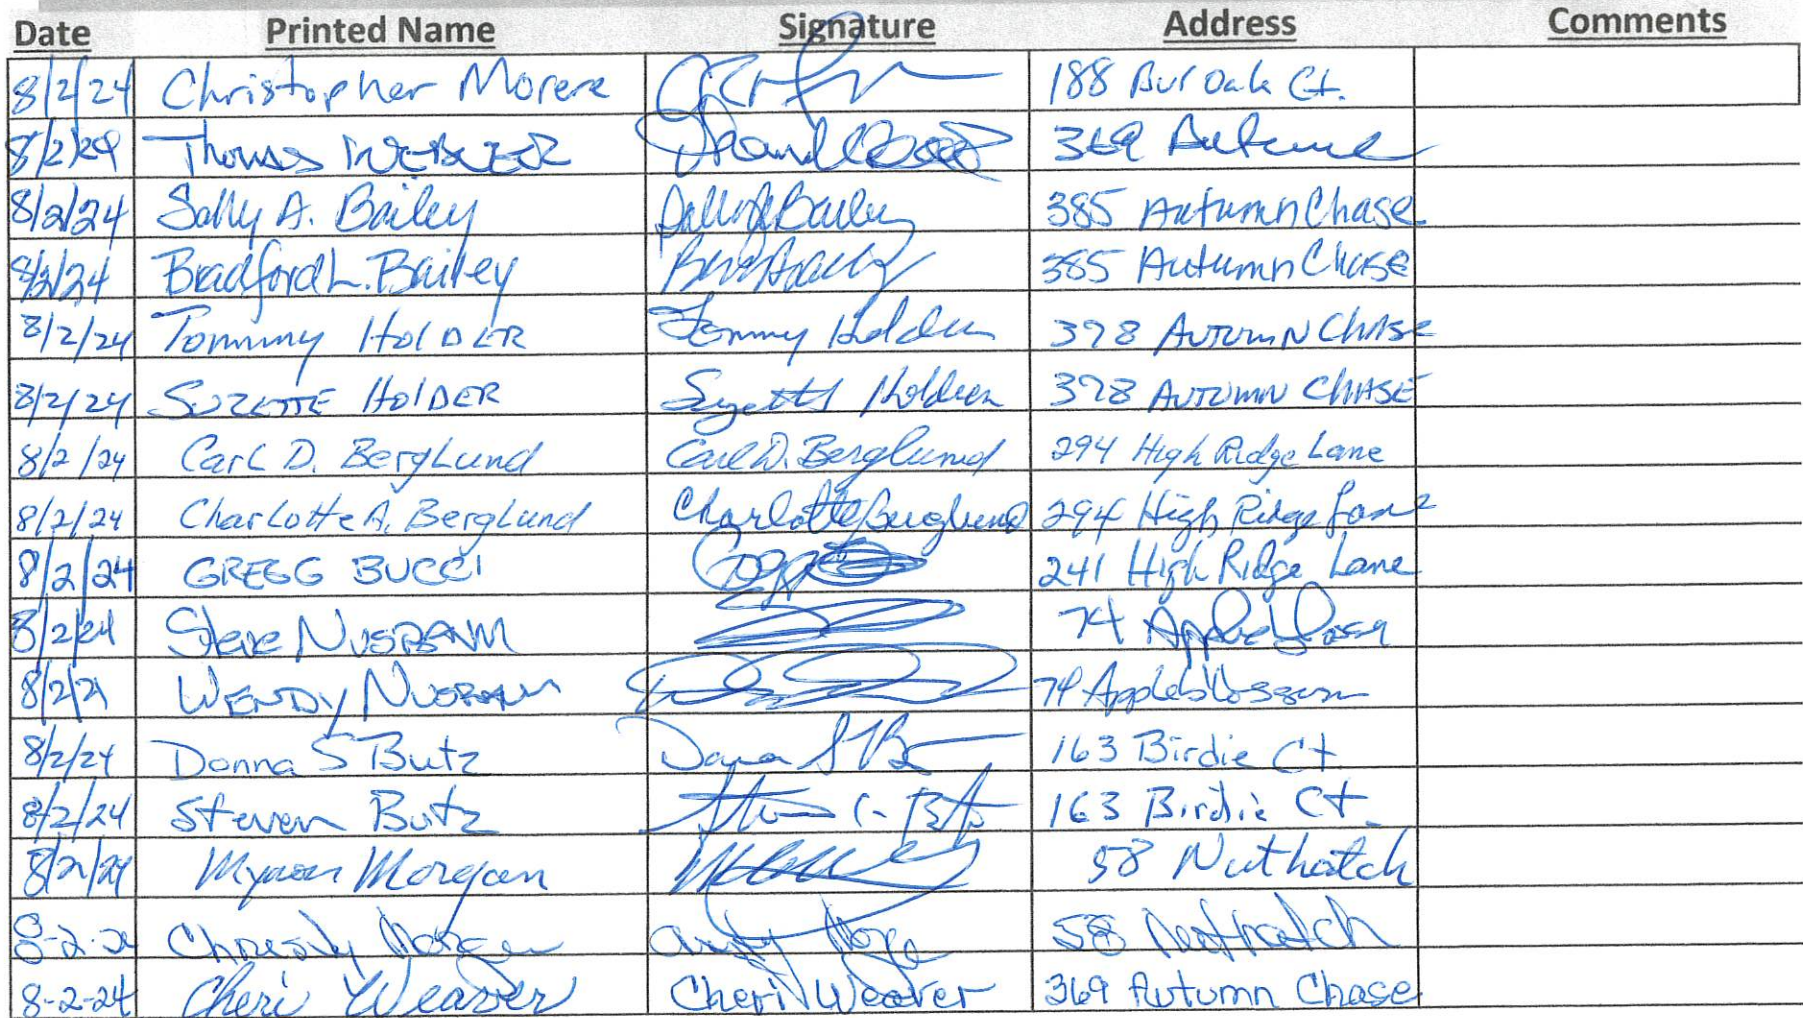 Date Printed Name Signature Address Comments
8/2/24 Christopher Morere 188 Bur Oak Ct.
8/2/24 Thomas 369 Autumn
8/2/24 Sally A. Bailey Sally A Bailey 385 Autumn Chase
8/2/24 Bradford L. Bailey 385 Autumn Chase
8/2/24 Tommy HolDER Tommy Holder 378 AUTUMN CHASE
8/2/24 SUZETTE HolDER Suzette Holder 378 AUTUMN CHASE
8/2/24 CarL D. BergLund Carl D. Berglund 294 High Ridge Lane
8/2/24 CharLotte A. BergLund Charlotte Berglund 294 High Ridge Lane
8/2/24 GREGG BUCCI 241 High Ridge Lane
8/2/24 Steve NUSBAUM 74 Appleblossom
8/2/2 WENDY NUSBAUM 74 Appleblossom
8/2/24 Donna S Butz Donna S B 163 Birdie Ct
8/2/24 Steven Butz 163 Birdie Ct.
8/2/24 Morgan 58 Nuthatch
8-2-2 Christy Morgan 58 Nuthatch
8-2-24 Cheri Weaver Cheri Weaver 369 Autumn Chase